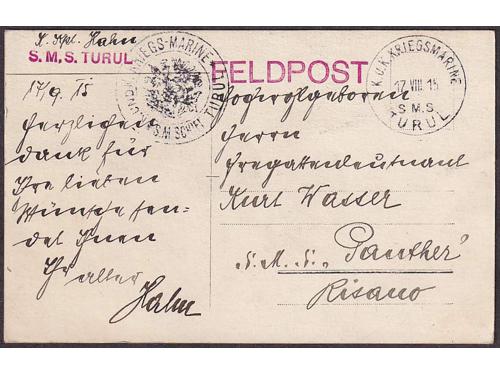 Kpl. Hahn
S.M.S. TURUL
17/9. 15
Herzlichen
Dank für
Ihre lieben
Wünsche sen-
det Ihnen
Ihr alter
Hahn
KRIEGS-MARINE
S.M. SCHIFF TURUL
FELDPOST
K.U.K. KRIEGSMARINE
17. VIII. 15
S.M.S.
TURUL
Hochwolgeboren
Herrn
Fregattenleutnant
Kurt Wasser
S.M.S. „Panther"
Risano